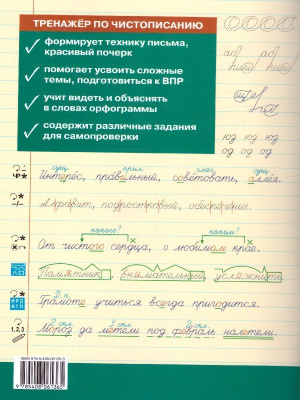 ТРЕНАЖЁР ПО ЧИСТОПИСАНИЮ
формирует технику письма,
красивый почерк
помогает усвоить сложные
темы, подготовиться к ВПР
учит видеть и объяснять
в словах орфограммы
содержит различные задания
для самопроверки
юд юд юд
од од од
сущ. прил. глаг. сущ.
Интерес, правильный, советовать, аллея.
Алфавит, подростковый,
какого? каком?
От чистого сердца, о любимом крае.
Памятник внимательный усложнить
Д.п.
Грамоте учиться всегда пригодится.
2 скл. 3 скл. 2 скл.
Мороз да метели под февраль налетели.
1,2,3
9785408061365